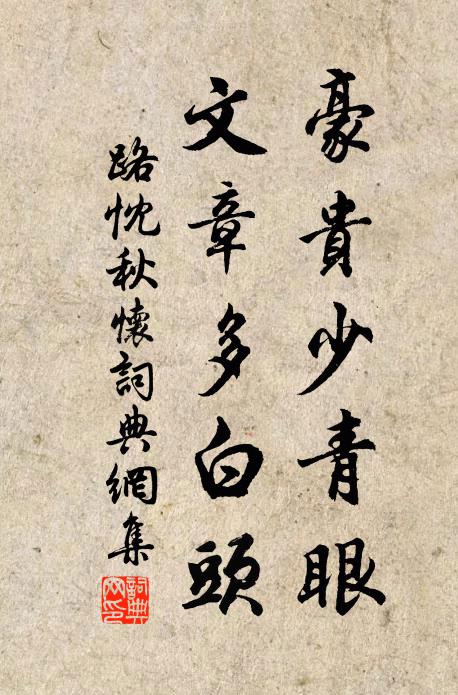 豪貴少青眼
文章多白頭
路忱秋懷詞典網集
詞典
網印